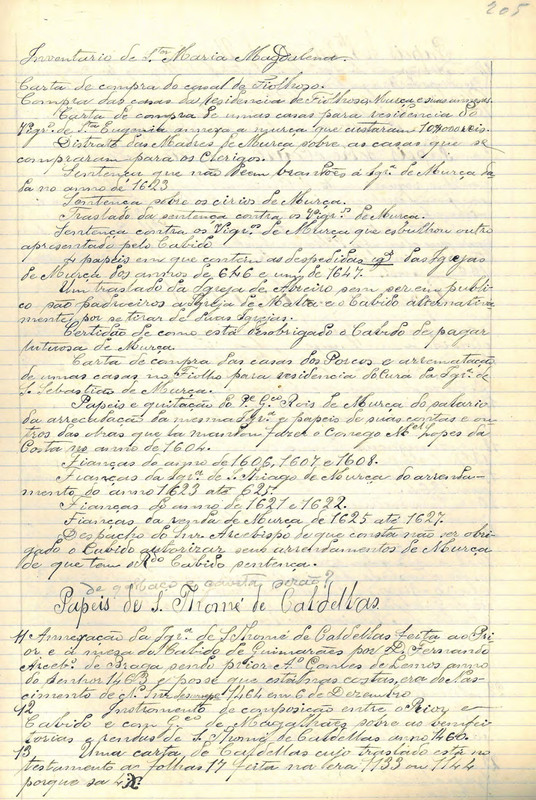 205
Inventario de S.ta Maria Magdalena.
Carta de compra do casal do Fiolhoso.
Compra das casas da Residencia de Fiolhoso, Murça e suas annexas.
Carta de compra de umas casas para residencia do
Vigr.º de S.ta Eugenia annexa a murça que custaram 109000 reis.
Distrate das Madres de Murça sobre as casas que se
compraram para os Clerigos.
Sentença que não deem brandões á Igr.ª de Murça da
da no anno de 1623
Sentença sobre os cirios de Murça.
Traslado da sentença contra os Vigr.os de Murça.
Sentença contra os Vigr.os de Murça que esbulhou outro
apresentado pelo Cabido
papeis em que contem as despedidas das Igrejas
de Murça dos annos de 646 e um de 1647.
Um traslado da Igreja de sem ser em publi
co são padroeiros a Igreja de Malta e o Cabido alternativa
mente, por se tirar de duas Igrejas.
Certidão de como está desobrigado o Cabido de pagar
lutuosa de Murça.
Carta de compra das casas dos Porcos e arrematação
de umas casas no Fiolho para residencia do Cura da Igr.ª de
S. Sebastião de Murça.
Papeis e quitação do P.e G.co Rois de Murça do salario
da arrecadação da mesma Igr.ª e papeis de suas contas e ou
tros das obras que la mandou fazer o Conego M.el Lopes da
Costa no anno de 1604.
Fianças do anno de 1606, 1607 e 1608.
Fianças da Igr.ª de S. Thiago de Murça do arrenda-
mento do anno 1623 até 625.
Fianças do anno de 1621 e 1622.
Fianças da renda de Murça de 1625 até 1627.
Despacho do Snr. Arcebispo de que consta não ser obri-
gado o Cabido autorizar seus arrendamentos de Murça
de que tem o R.do Cabido sentença.
de quitaço e gavetas serão?
Papeis de S. Thomé de Caldellas.
11 Annexação da Igr.ª de S. Thomé de Caldellas feita ao Pri
or e á meza do Cabido de Guimarães por D. Fernando
Arceb.º de Braga sendo prior A.º de Lemos anno
do Senhor 1463 e posse que está nas costas, era do Nas-
cimento de N. Snr. 1464 em 6 de Dezembro.
12 Instromento de composição entre o Prior e
Cabido e com G.co de Magalhães sobre as benfei
torias e rendas de S. Thomé de Caldellas anno 1460.
13 Uma carta de Caldellas cujo traslado está no
testamento ao folhas 17 feita na era 1133 ou 1144
porque sa